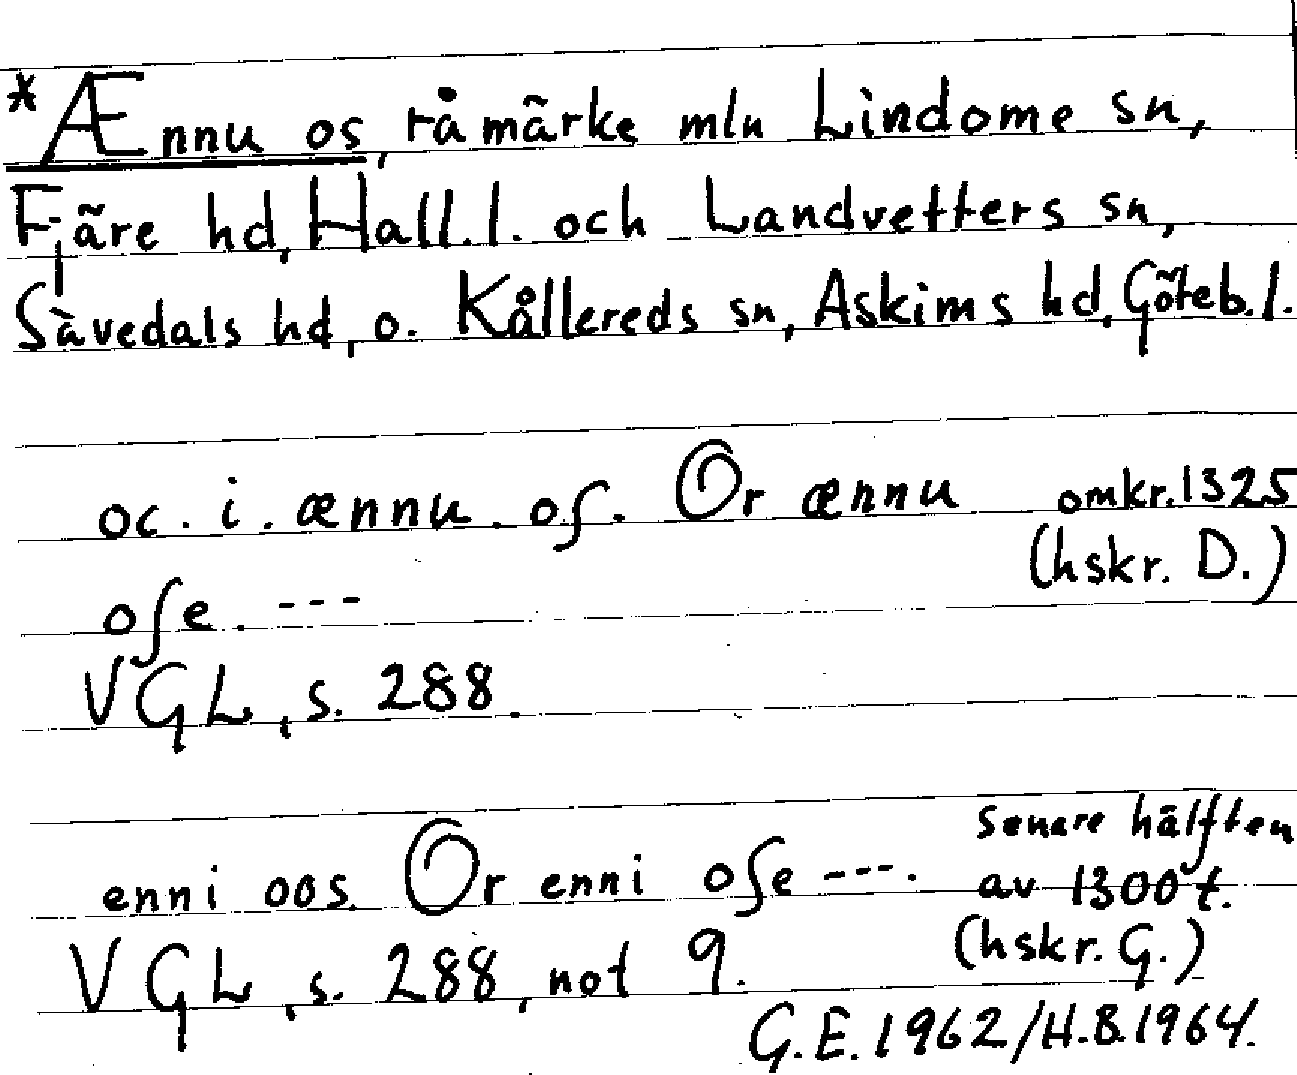 *Ænnu os, råmärke mln Lindome sn,
Fjäre hd, Hall.l. och Landvetters sn,
Sävedals hd, o. Kållereds sn, Askims hd, Göteb.l.
oc. i. ænnu. oſ. Or ænnu omkr. 1325
(hskr. D.)
oſe. ---
VGL, s. 288.
senare hälften
enni oos. Or enni oſe ---. av 1300 t.
(hskr. G.)
VGL, s. 288, not 9.
G.E. 1962/H.B. 1964.